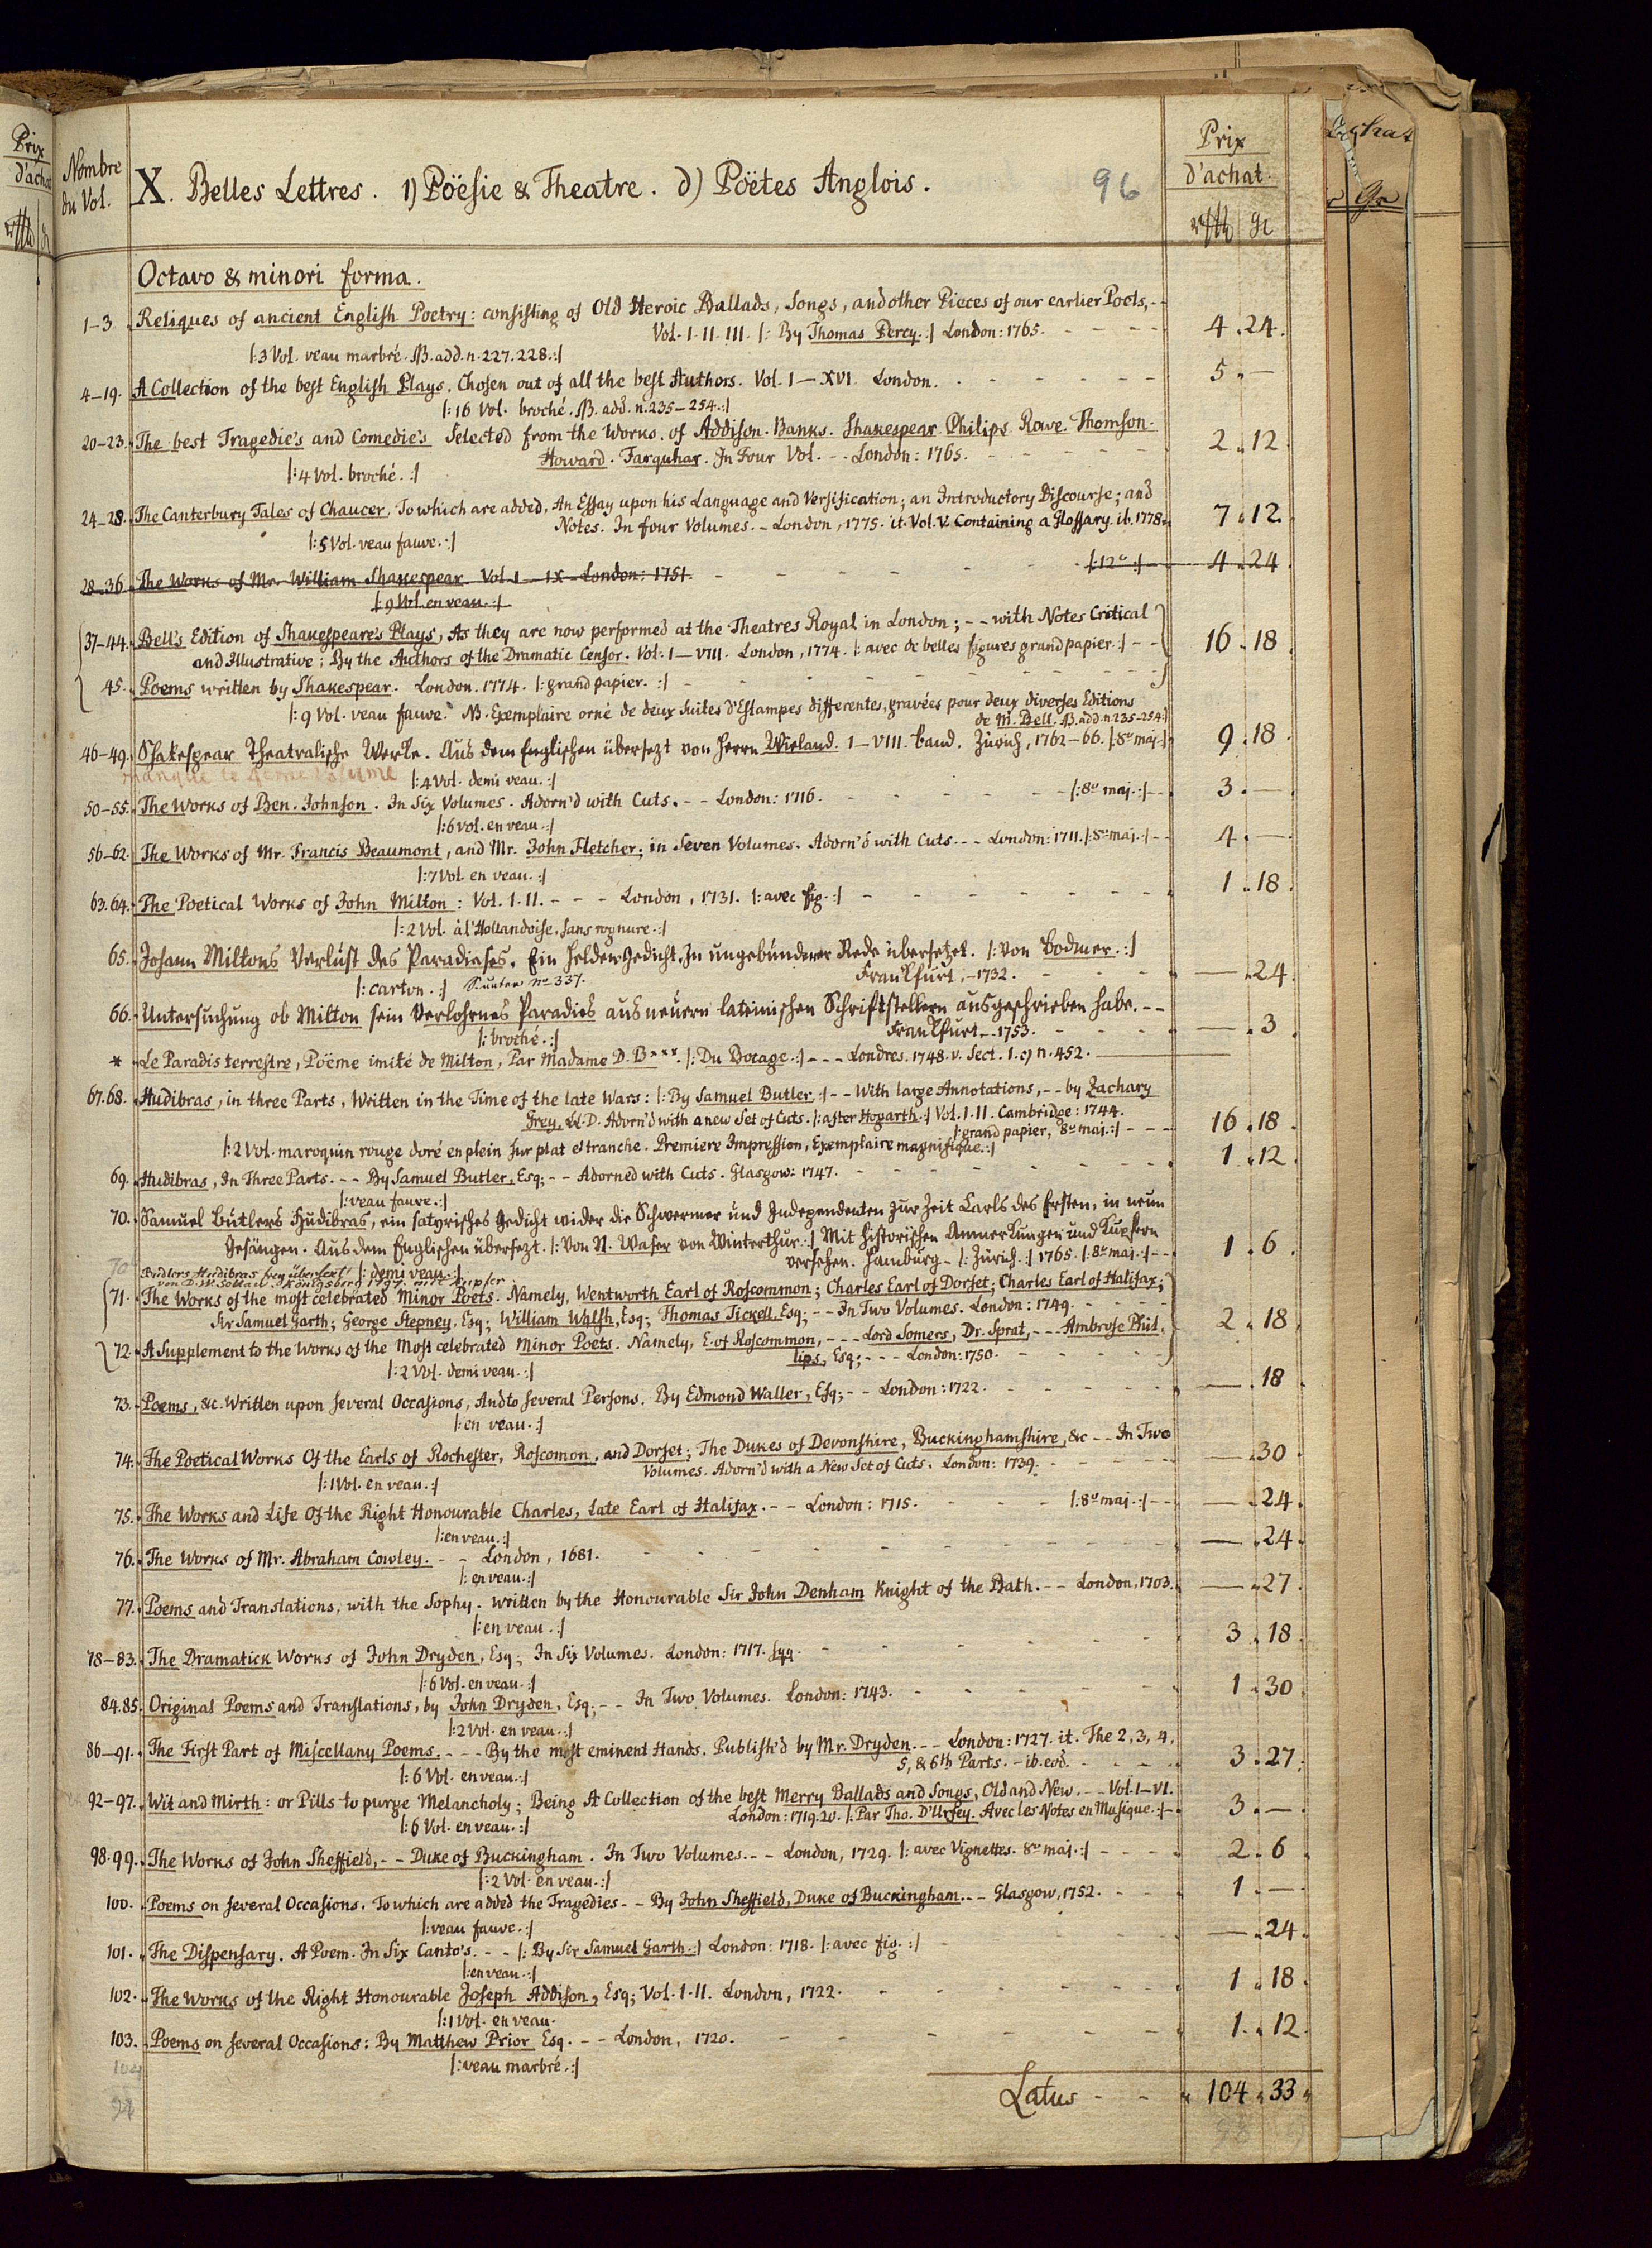 Prix
d'achat
Nombre
du Vol.
X. Belles Lettres. 1) Poësie & Theatre. d) Poëtes Anglois.
96
Prix
d'achat.
rthl gr
Octavo & minori forma.
1–3. Reliques of ancient English Poetry: consisting of Old Heroic Ballads, Songs, and other Pieces of our earlier Poets, - -
Vol. I. II. III. |: By Thomas Percy. :| London: 1765. - - - - 4 . 24.
|: 3 Vol. veau marbré. NB. add. n. 227. 228. :|
4–19. A Collection of the best English Plays. Chosen out of all the best Authors. Vol. I – XVI. London. - - - - 5 . —
|: 16 Vol. broché. NB. add. n. 235–254. :|
20–23. The best Tragedie's and Comedie's Selected from the Works of Addison. Banks. Shakespear. Philips. Rowe. Thomson.
Howard. Farquhar. In Four Vol. - - London: 1765. - - - - 2 . 12.
|: 4 Vol. broché. :|
24–28. The Canterbury Tales of Chaucer. To which are added, An Essay upon his Language and Versification; an Introductory Discourse; and
Notes. In four Volumes. - London, 1775. it. Vol. V. Containing a Glossary. ib. 1778. 7 . 12.
|: 5 Vol. veau fauve. :|
28–36. The Works of Mr. William Shakespear. Vol. I – IX. London: 1751. - - - - |: 12° :| 4 . 24
|: 9 Vol. en veau. :|
37–44. Bell's Edition of Shakespeare's Plays, As they are now performed at the Theatres Royal in London; - - with Notes Critical
and Illustrative; By the Authors of the Dramatic Censor. Vol. I – VIII. London, 1774. |: avec de belles figures grand papier. :| - - 16 . 18.
45. Poems written by Shakespear. London. 1774. |: grand papier. :| - - - -
|: 9 Vol. veau fauve. NB. Exemplaire orné de deux suites d'Estampes differentes, gravées pour deux diverses Editions
de M. Bell. NB. add. n. 235–254. :|
46–49. Shakespear Theatralische Werke. Aus dem Englischen übersezt von Herrn Wieland. I–VIII. Band. Zürich, 1762–66. |: 8° maj. :| 9 . 18.
manque le 4eme Volume
|: 4 Vol. demi veau. :|
50–55. The Works of Ben. Johnson. In Six Volumes. Adorn'd with Cuts. - - London: 1716. - - - - |: 8° maj. :| - - 3 . —
|: 6 vol. en veau. :|
56–62. The Works of Mr. Francis Beaumont, and Mr. John Fletcher; in Seven Volumes. Adorn'd with Cuts. - - London: 1711. |: 8° maj. :| - - 4 . —
|: 7 Vol. en veau. :|
63. 64. The Poetical Works of John Milton: Vol. I. II. - - - London, 1731. |: avec fig. :| - - - - 1 . 18.
|: 2 Vol. à l'Hollandoise, sans rognure. :|
65. Johann Miltons Verlust des Paradieses. Ein Helden-Gedicht. In ungebundener Rede übersetzet. |: von Bodmer. :|
Frankfurt, - 1732. - - - - — . 24.
|: carton. :|
66. Untersuchung ob Milton sein Verlohrnes Paradies aus neuern lateinischen Schriftstellern ausgeschrieben habe. - -
Frankfurt. - 1753. - - - - — . 3.
|: broché. :|
* Le Paradis terrestre, Pöëme imité de Milton, Par Madame D. B***. |: Du Bocage. :| - - - Londres. 1748. v. Sect. 1. c) n. 452. —
67. 68. Hudibras, in three Parts, Written in the Time of the late Wars: |: By Samuel Butler. :| - - With large Annotations, - - by Zachary
Grey, LL. D. Adorn'd with a new Set of Cuts. |: after Hogarth. :| Vol. I. II. Cambridge: 1744.
|: grand papier, 8° maj. :| - - - 16 . 18.
|: 2 Vol. maroquin rouge doré en plein sur plat et tranche. Premiere Impression, Exemplaire magnifique. :|
69. Hudibras, In Three Parts. - - By Samuel Butler, Esq; - - Adorned with Cuts. Glasgow: 1747. - - - - 1 . 12.
|: veau fauve. :|
70. Samuel Butlers Hudibras, ein satyrisches Gedicht wider die Schwermer und Independenten zur Zeit Carls des Ersten, in neun
Gesängen. Aus dem Englischen übersezt. |: Von N. Waser von Winterthur. :| Mit historischen Anmerkungen und Kupfern
versehen. Hamburg - |: Zürich. :| 1765. |: 8° maj. :| - - 1 . 6.
|: demi veau. :|
70 Butlers Hudibras frey übersezt
von D. W. Soltau. Königsberg 1797. mit Kupfer
71. The Works of the most celebrated Minor Poets. Namely, Wentworth Earl of Roscommon; Charles Earl of Dorset; Charles Earl of Halifax;
Sir Samuel Garth; George Stepney, Esq; William Walsh, Esq; Thomas Tickell, Esq; - - In Two Volumes. London: 1749. - - - - 2 . 18.
72. A Supplement to the Works of the Most celebrated Minor Poets. Namely, E. of Roscommon, - - - Lord Somers, Dr. Sprat, - - - Ambrose Phil-
lips, Esq; - - - London: 1750. - - - -
|: 2 Vol. demi veau. :|
73. Poems, &c. Written upon several Occasions, And to several Persons. By Edmond Waller, Esq; - - London: 1722. - - - - — . 18
|: en veau. :|
74. The Poetical Works Of the Earls of Rochester, Roscomon, and Dorset; The Dukes of Devonshire, Buckinghamshire, &c - - In Two
Volumes. Adorn'd with a New Set of Cuts. London: 1739. - - - - — . 30
|: 1 Vol. en veau. :|
75. The Works and Life Of the Right Honourable Charles, Late Earl of Halifax. - - London: 1715. - - - |: 8° maj. :| - - — . 24.
|: en veau. :|
76. The Works of Mr. Abraham Cowley. - - London, 1681. - - - - — . 24.
|: en veau. :|
77. Poems and Translations, with the Sophy. written by the Honourable Sir John Denham Knight of the Bath. - - London, 1703. — . 27.
|: en veau. :|
78–83. The Dramatick Works of John Dryden, Esq; In Six Volumes. London: 1717. sqq. - - - - 3 . 18.
|: 6 Vol. en veau. :|
84. 85. Original Poems and Translations, by John Dryden, Esq; - - In Two Volumes. London: 1743. - - - - 1 . 30
|: 2 Vol. en veau. :|
86–91. The First Part of Miscellany Poems. - - - By the most eminent Hands. Publish'd by Mr. Dryden. - - London: 1727. it. The 2, 3, 4,
5, & 6th Parts. - ib. eod. - - - - 3 . 27.
|: 6 Vol. en veau. :|
92–97. Wit and Mirth: or Pills to purge Melancholy; Being A Collection of the best Merry Ballads and Songs, Old and New. - - Vol. I–VI.
London: 1719. 20. |: Par Tho. D'Urfey. Avec les Notes en Musique. :| - 3 . —
|: 6 Vol. en veau. :|
98. 99. The Works of John Sheffield, - - Duke of Buckingham. In Two Volumes. - - London, 1729. |: avec Vignettes. 8° maj. :| - - - - 2 . 6
|: 2 Vol. en veau. :|
100. Poems on several Occasions. To which are added the Tragedies - - By John Sheffield, Duke of Buckingham. - - Glasgow, 1752. - - 1 . —
|: veau fauve. :|
101. The Dispensary. A Poem. In Six Canto's. - - |: By Sir Samuel Garth. :| London: 1718. |: avec fig. :| - — . 24.
|: en veau. :|
102. The Works of the Right Honourable Joseph Addison, Esq; Vol. I. II. London, 1722. - - - - 1 . 18.
|: 1 Vol. en veau.
103. Poems on several Occasions: By Matthew Prior Esq. - - London, 1720. - - - - 1 . 12.
|: veau marbré. :|
104
Latus - - 104 . 33.